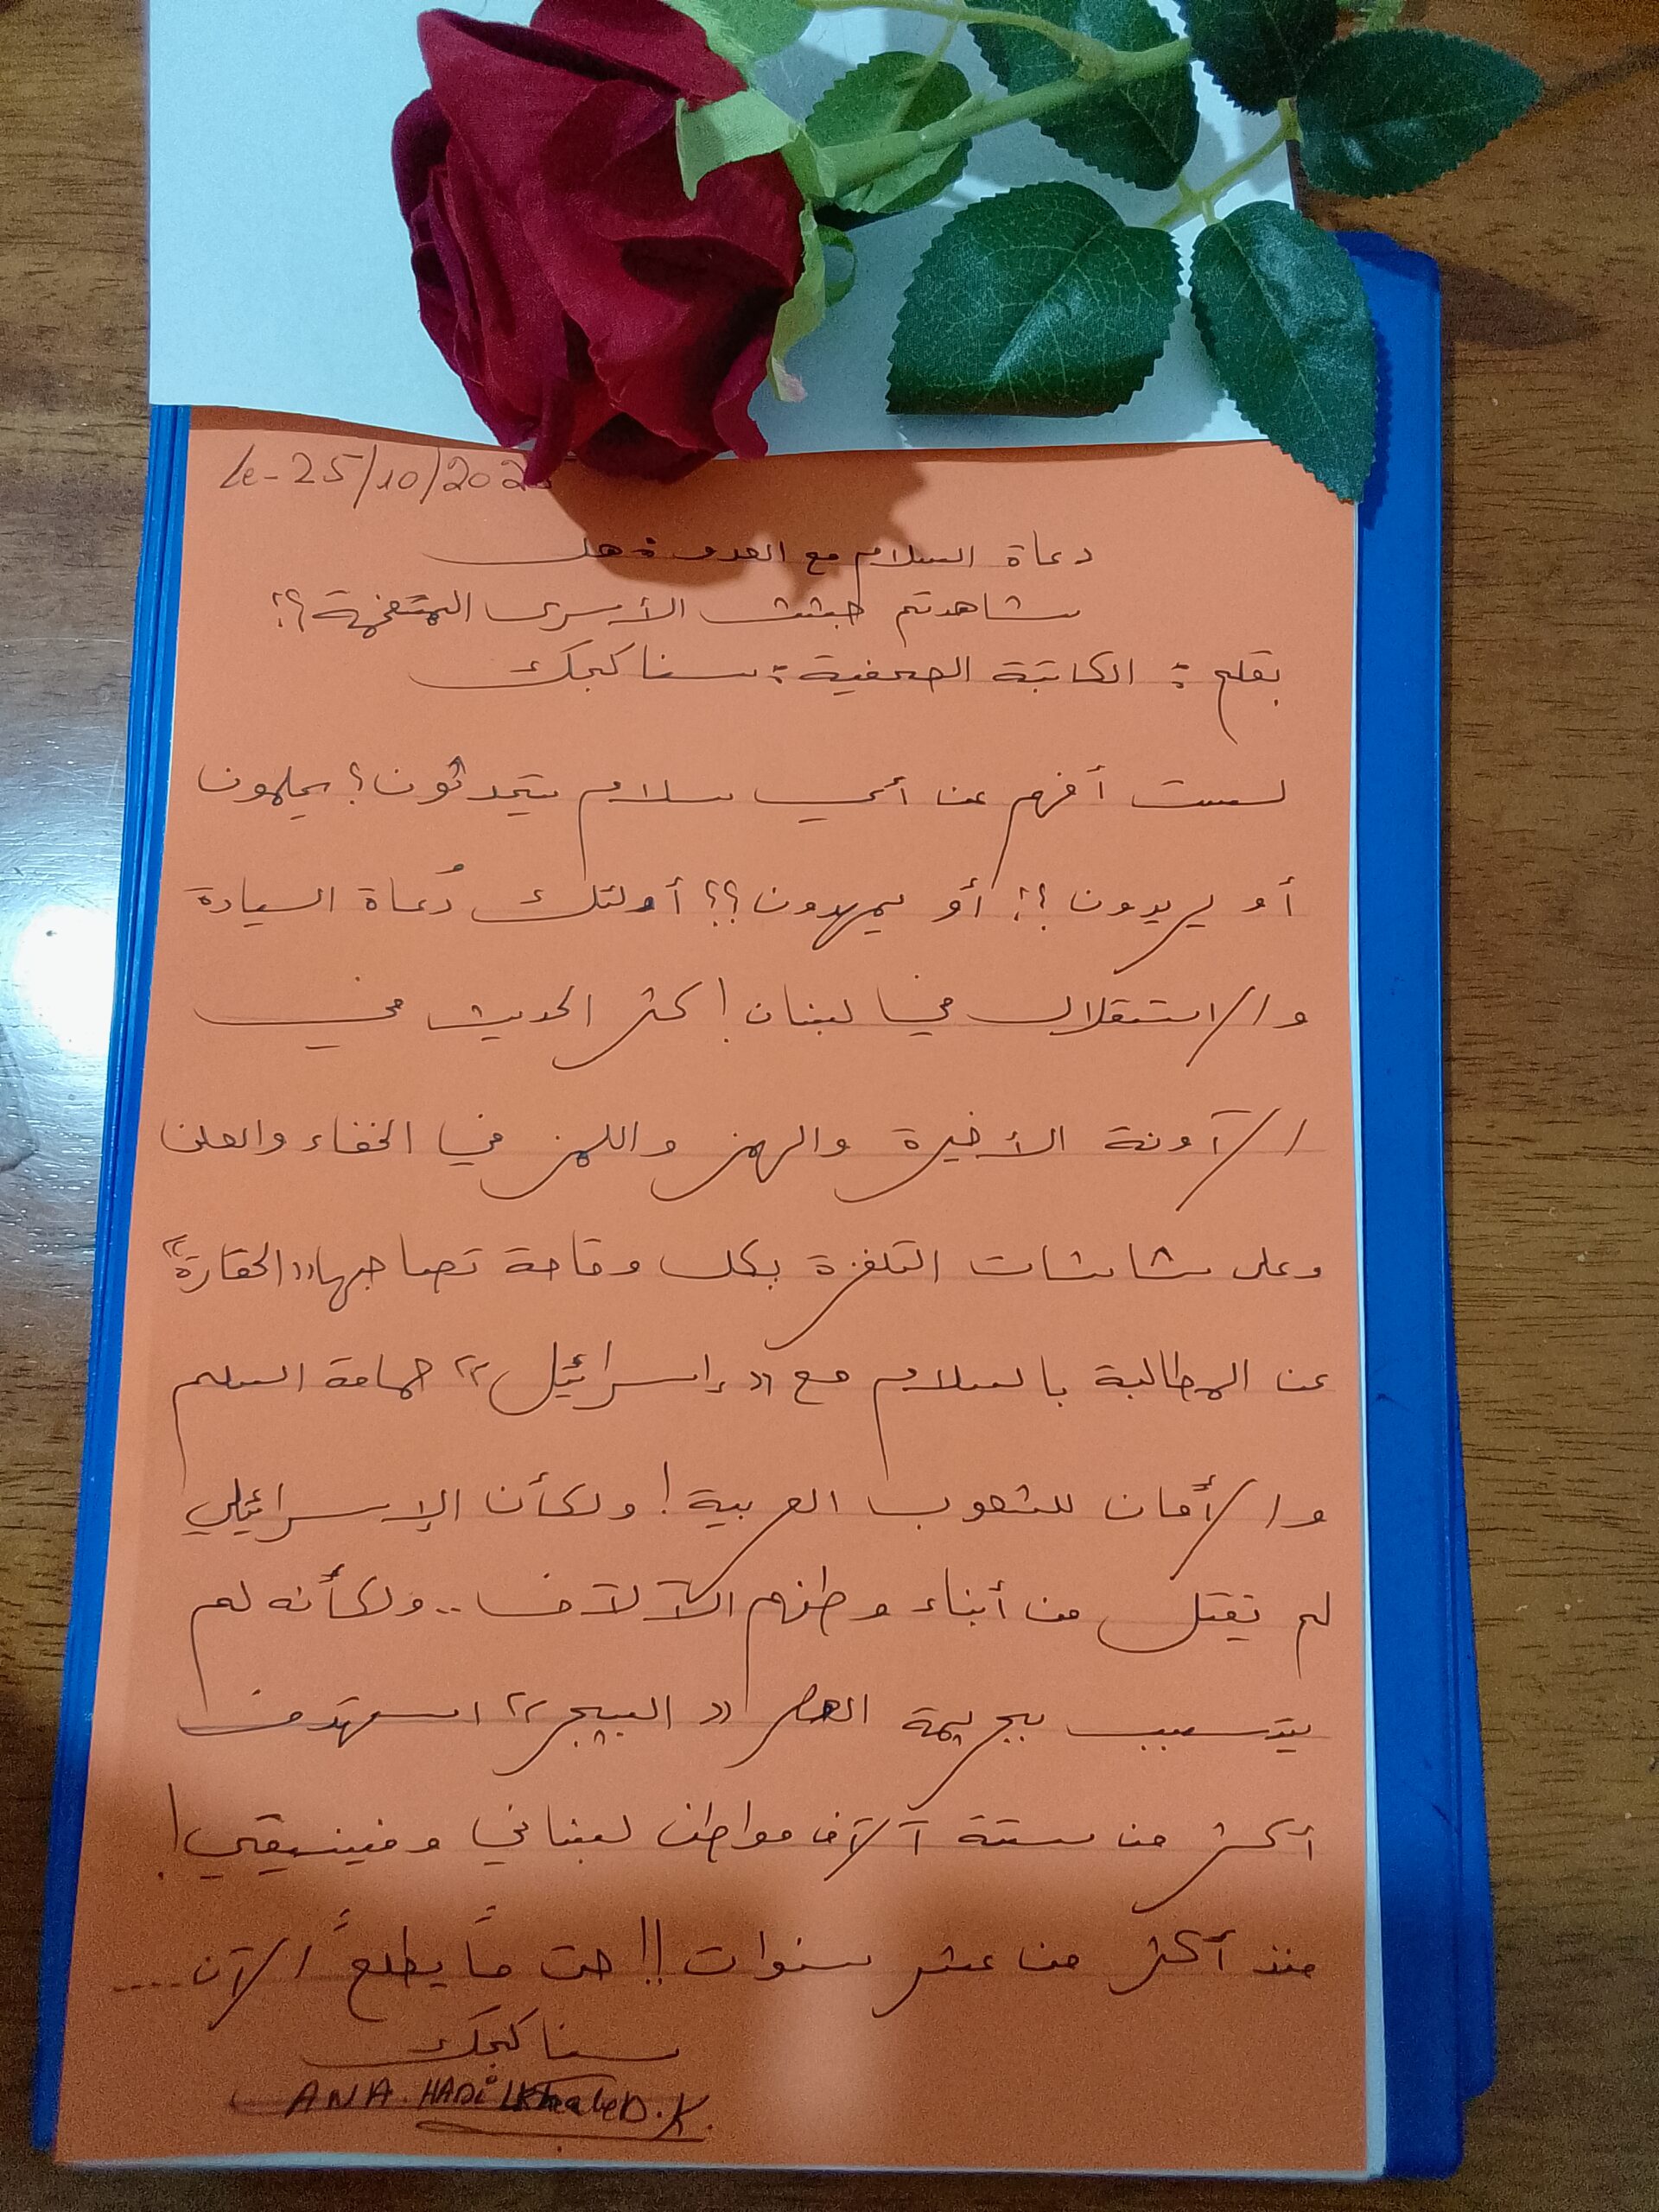 Le-25/10/202
دعاة السلام مع العدو: هل
شاهدتم جثث الأسرى المتفحمة؟!
بقلم: الكاتبة الصحفية: سنا كجك
لست أفهم عن أي سلام يتحدثون؟ يحلمون
أو يريدون؟! أو يمهدون؟؟ أولئك دُعاة السيادة
والاستقلال في لبنان! كثر الحديث في
الآونة الأخيرة والهمز واللمز في الخفاء والعلن
وعلى شاشات التلفزة بكل وقاحة تصاحبها "الحقارة"
عن المطالبة بالسلام مع "إسرائيل" حمامة السلم
والأمان للشعوب العربية! ولكأن الإسرائيلي
لم يقتل من أبناء وطنهم الآلاف.. ولكأنه لم
يتسبب بجريمة العصر "البيجر" استهدف
أكثر من ستة آلاف مواطن لبناني وفينيقي!
منذ أكثر من عشر سنوات!! حتماً يطلع الآن....
سنا كجك
ANA. HADi Khaled.K.